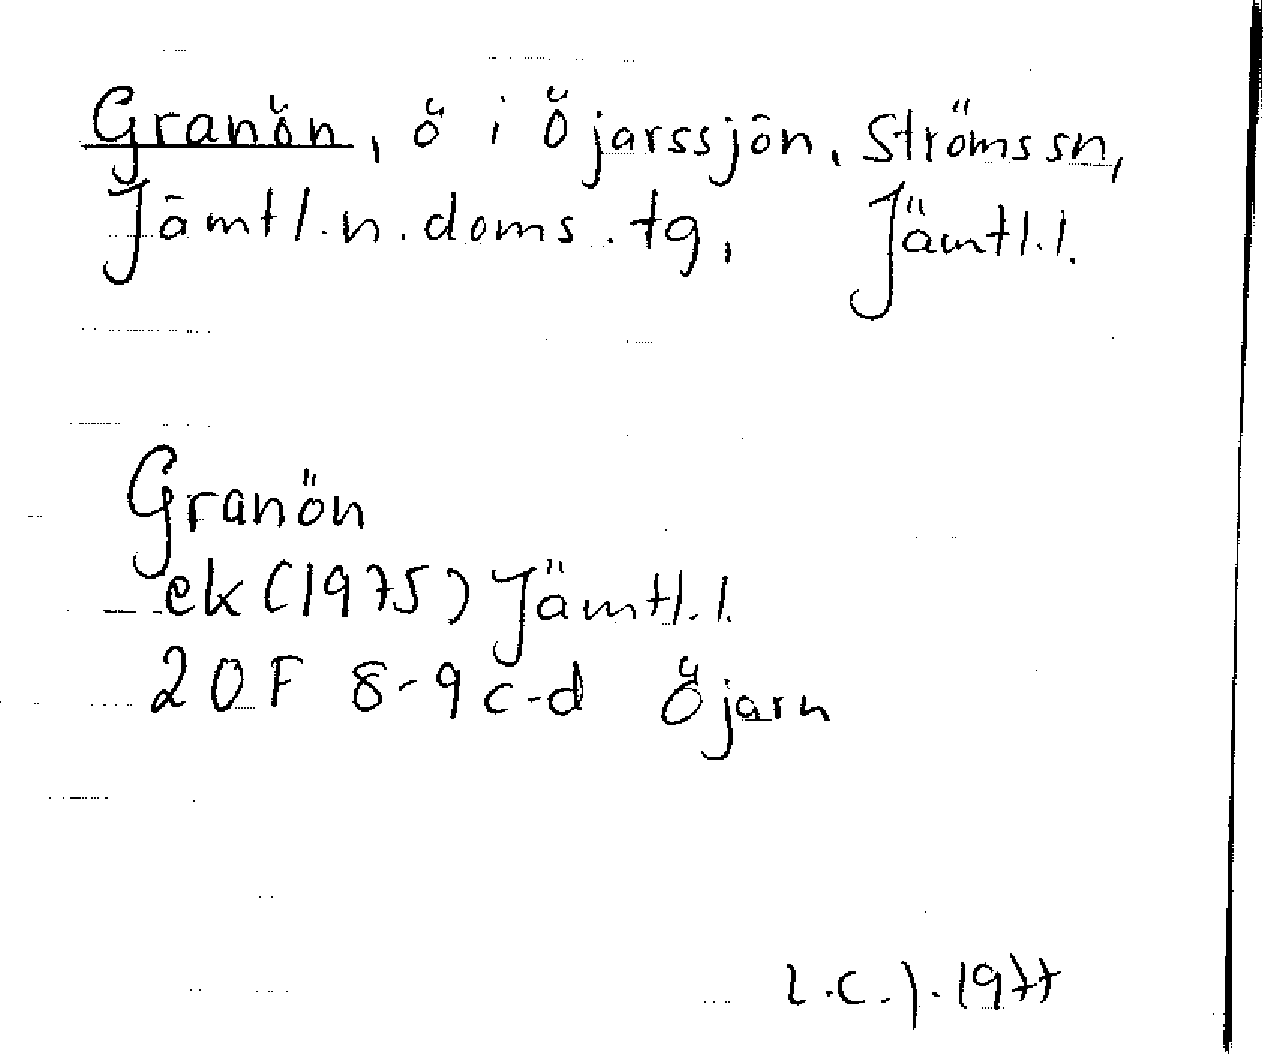 Granön, ö i Öjarssjön, Ströms sn,
Jämtl.n.doms.tg, Jämtl.l.
Granön
ek (1975) Jämtl.l.
20F 8-9 c-d Öjarn
L.C.J. 1977